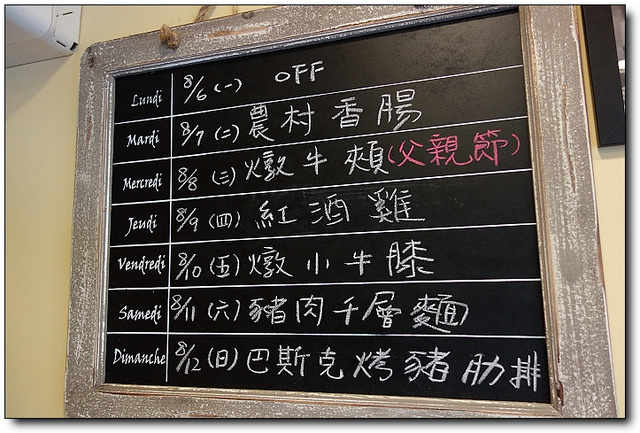 Lundi 8/6 (一) OFF
Mardi 8/7 (二) 農村香腸
Mercredi 8/8 (三) 燉牛頰(父親節)
Jeudi 8/9 (四) 紅酒雞
Vendredi 8/10 (五) 燉小牛膝
Samedi 8/11 (六) 豬肉千層麵
Dimanche 8/12 (日) 巴斯克烤豬肋排